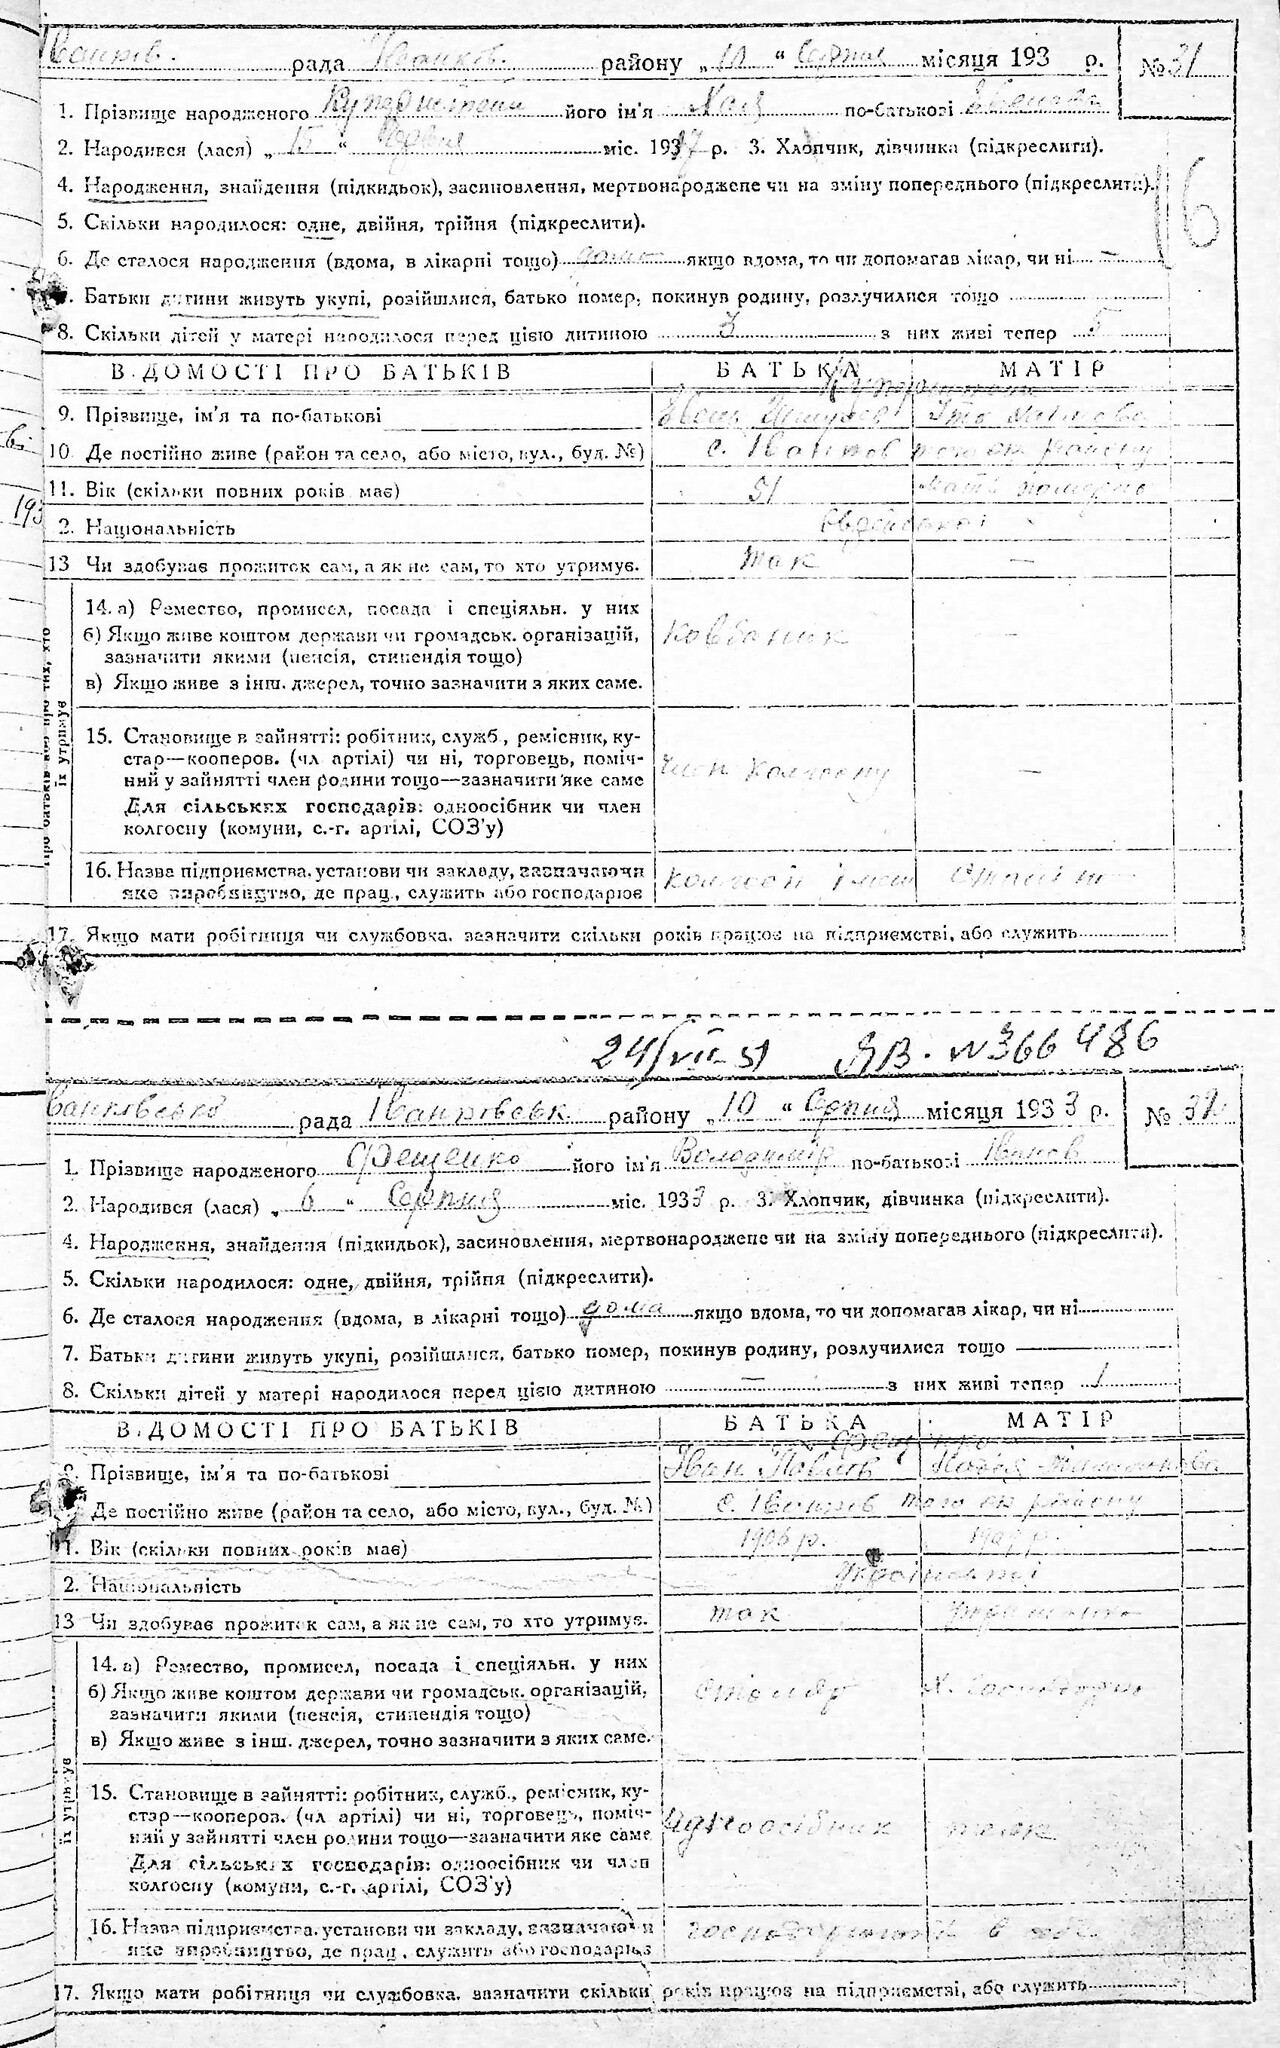 Іванків. рада Іванков. району „10“ Серпня місяця 193 р. № 31
1. Прізвище народженого його ім'я Хая по-батькові
2. Народився (лася) „15“ Червня міс. 1917 р. 3. Хлопчик, дівчинка (підкреслити).
4. Народження, знайдення (підкидьок), засиновлення, мертвонароджене чи на зміну попереднього (підкреслити).
16
5. Скільки народилося: одне, двійня, трійня (підкреслити).
6. Де сталося народження (вдома, в лікарні тощо) дома якщо вдома, то чи допомагав лікар, чи ні —
Батьки дитини живуть укупі, розійшлися, батько помер, покинув родину, розлучилися тощо
8. Скільки дітей у матері народилося перед цією дитиною з них живі тепер 5
ВІДОМОСТІ ПРО БАТЬКІВ БАТЬКА МАТІР
9. Прізвище, ім'я та по-батькові
10. Де постійно живе (район та село, або місто, вул., буд. №) с. Іванков того ж району
11. Вік (скільки повних років має) 51 мати померла
193
2. Національність Єврейської
13 Чи здобуває прожиток сам, а як не сам, то хто утримує. так —
14. а) Ремество, промисел, посада і спеціяльн. у них
б) Якщо живе коштом держави чи громадськ. організацій, Ковбаник —
зазначити якими (пенсія, стипендія тощо)
в) Якщо живе з інш. джерел, точно зазначити з яких саме.
про тих, хто їх утримує
15. Становище в зайнятті: робітник, служб., ремісник, ку-
стар—кооперов. (чл артілі) чи ні, торговець, поміч-
ний у зайнятті член родини тощо—зазначити яке саме член колгоспу —
Для сільських господарів: одноосібник чи член
колгоспу (комуни, с.-г. артілі, СОЗ'у)
16. Назва підприємства, установи чи закладу, зазначаючи колгосп імені
яке виробництво, де прац., служить або господарює
17. Якщо мати робітниця чи службовка, зазначити скільки років працює на підприємстві, або служить
24/VII-51 ЯВ. N 366486
Іванківсько рада Іванківськ району „10“ Серпня місяця 1933 р. № 32
1. Прізвище народженого Фещенко його ім'я Володимір по-батькові Іванов
2. Народився (лася) „6“ Серпня міс. 1933 р. 3. Хлопчик, дівчинка (підкреслити).
4. Народження, знайдення (підкидьок), засиновлення, мертвонароджене чи на зміну попереднього (підкреслити).
5. Скільки народилося: одне, двійня, трійня (підкреслити).
6. Де сталося народження (вдома, в лікарні тощо) дома якщо вдома, то чи допомагав лікар, чи ні
7. Батьки дитини живуть укупі, розійшлися, батько помер, покинув родину, розлучилися тощо
8. Скільки дітей у матері народилося перед цією дитиною — з них живі тепер 1
ВІДОМОСТІ ПРО БАТЬКІВ БАТЬКА МАТІР
Фещенко
Прізвище, ім'я та по-батькові Іван Павлов
Де постійно живе (район та село, або місто, вул., буд. №) с. Іванків того ж району
11. Вік (скільки повних років має) 1906 р. 1907 р.
2. Національність Української
13 Чи здобуває прожиток сам, а як не сам, то хто утримує. так
14. а) Ремество, промисел, посада і спеціяльн. у них
б) Якщо живе коштом держави чи громадськ. організацій, столяр
зазначити якими (пенсія, стипендія тощо)
в) Якщо живе з інш. джерел, точно зазначити з яких саме.
їх утримує
15. Становище в зайнятті: робітник, служб., ремісник, ку-
стар—кооперов. (чл артілі) чи ні, торговець, поміч-
ний у зайнятті член родини тощо—зазначити яке саме одноосібник також
Для сільських господарів: одноосібник чи член
колгоспу (комуни, с.-г. артілі, СОЗ'у)
16. Назва підприємства, установи чи закладу, зазначаючи
яке виробництво, де прац., служить або господарює
17. Якщо мати робітниця чи службовка, зазначити скільки років працює на підприємстві, або служить